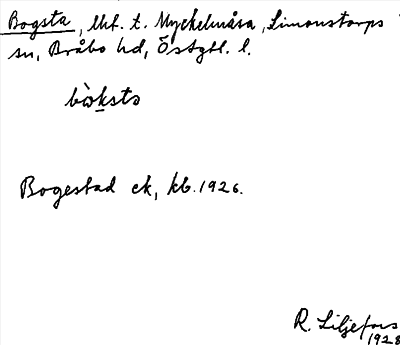 Bogsta, lht. t. Myckelmåsa, Simonstorps
sn, Bråbo hd, Östgtl. l.
bòksto
Bogestad ek, kb. 1926.
R. Liljefors
1928